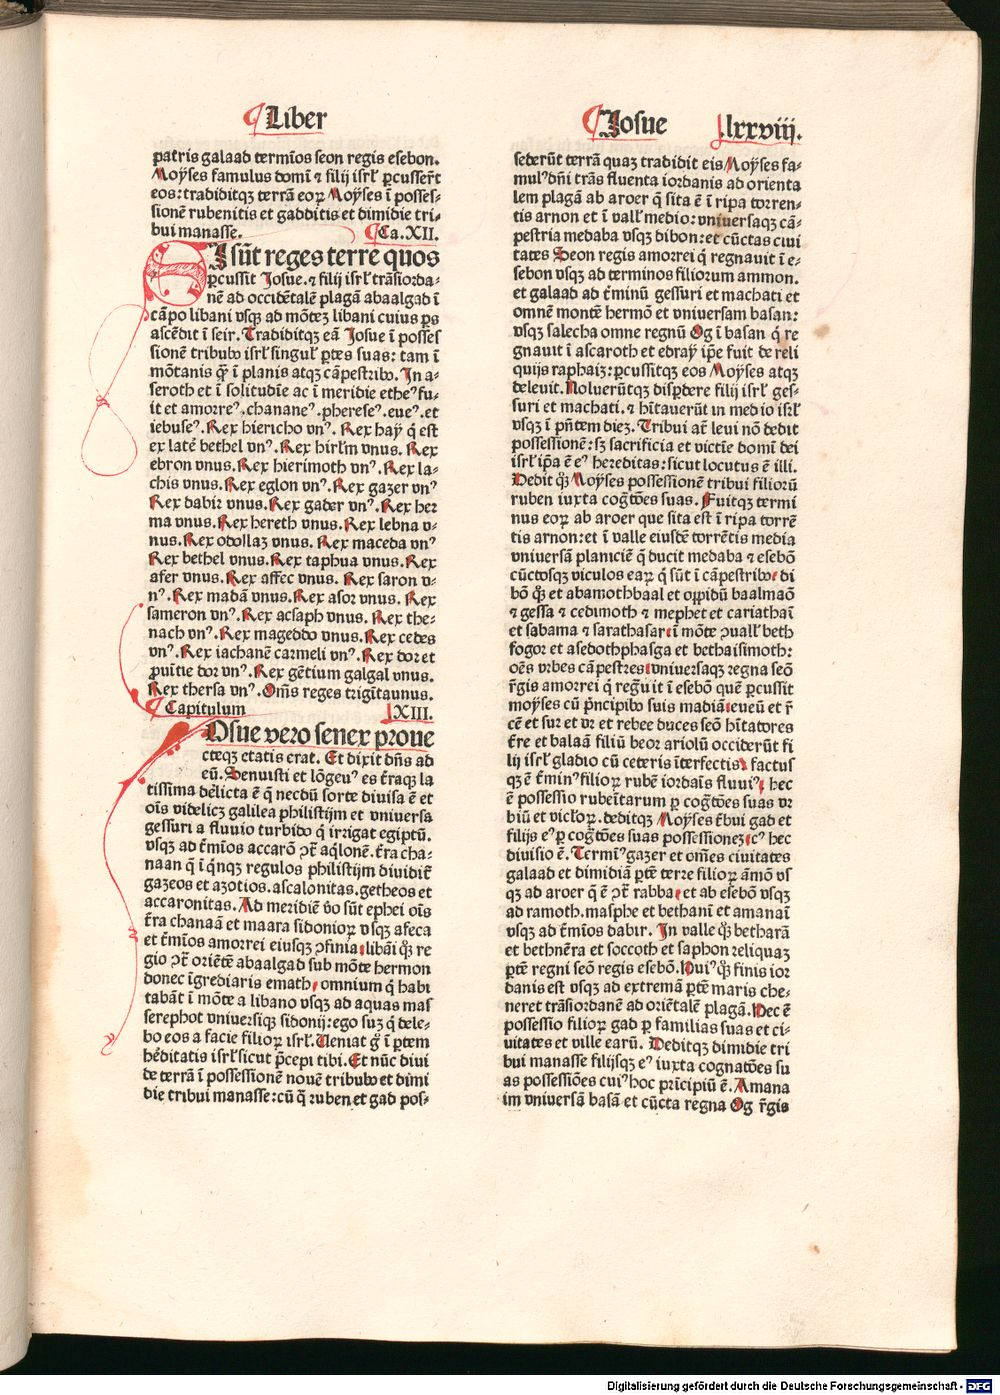 Liber
Josue .lxxviij.
patris galaad termīos seon regis esebon.
Moyses famulus domī ⁊ filij isrł ꝑcusser̄t
eos: tradiditqȝ terrā eoꝝ Moyses ī posses-
sionē rubenitis et gadditis et dimidie tri-
bui manasse. Ca.XII.
Isūt reges terre quos
ꝑcussit Josue.⁊ filij isrł trāsiorda-
nē ad occidētalē plagā abaalgad ī
cāpo libani vsqȝ ad mōteȝ libani cuius ꝑs
ascēdit ī seir. Tradiditqȝ eā Josue ī posses
sionē tribubꝰ isrł singuł ꝑtes suas: tam ī
mōtanis q̄ȝ ī planis atqȝ cāpestribꝰ. In a-
seroth et ī solitudīe ac ī meridie etheꝰ fu-
it et amorreꝰ.chananeꝰ.phereseꝰ.eueꝰ.et
iebuseꝰ. Rex hiericho vnꝰ. Rex hay q̄ est
ex latē bethel vnꝰ. Rex hirłm vnus. Rex
ebron vnus. Rex hierimoth vnꝰ. Rex la-
chis vnus. Rex eglon vnꝰ. Rex gazer vnꝰ
Rex dabir vnus. Rex gader vnꝰ. Rex her
ma vnus. Rex hereth vnus. Rex lebna v-
nus. Rex odollaȝ vnus. Rex maceda vnꝰ
Rex bethel vnus. Rex taphua vnus. Rex
afer vnus. Rex affec vnus. Rex saron v-
nꝰ. Rex madā vnus. Rex asor vnus. Rex
sameron vnꝰ. Rex acsaph vnus. Rex the-
nach vnꝰ. Rex mageddo vnus. Rex cedes
vnꝰ. Rex iachanē carmeli vnꝰ. Rex dor et
ꝓuītie dor vnꝰ. Rex gētium galgal vnus.
Rex thersa vnꝰ. Om̄s reges trigītaunus.
Capitulum XIII.
Osue vero senex proue
cteqȝ etatis erat. Et dixit dn̄s ad
eū. Senuisti et lōgeuꝰ es t̄raqȝ la
tissima delicta ē q̄ necdū sorte diuisa ē et
oīs videlicȝ galilea philistijm et vniuersa
gessuri a fluuio turbido q̄ irrigat egiptū.
vsqȝ ad t̄mīos accarō ꝯt̄ aqlonē. t̄ra cha-
naan q̄ ī qnqȝ regulos philistijm diuidit̄
gazeos et azotios. ascalonitas. getheos et
accaronitas. Ad meridiē v̄o sūt ephei oīs
t̄ra chanaā et maara sidonioꝝ vsqȝ afeca
et t̄mīos amorrei eiusqȝ ꝯfinia libāi q̄ȝ re
gio ꝯt̄ oriētē abaalgad sub mōte hermon
donec īgrediaris emath omnium q̄ habi
tabāt ī mōte a libano vsqȝ ad aquas mas
serephot vniuersiqȝ sidonij: ego suȝ q̄ dele-
bo eos a facie filioꝝ isrł. Veniat ḡ ī ꝑtem
he̅ditatis isrł sicut p̄cepi tibi. Et nūc diui
de terrā ī possessionē nouē tribubꝰ et dimi
die tribui manasse: cū q̄ ruben et gad pos-
sederūt terrā quaȝ tradidit eis Moyses fa-
mulꝰ dn̄i trās fluenta iordanis ad orienta
lem plagā ab aroer q̄ sita ē ī ripa torren-
tis arnon et ī vałł medio: vniuersaqȝ cā-
pestria medaba vsqȝ dibon: et cūctas ciui
tates Seon regis amorrei q̄ regnauit ī e-
sebon vsqȝ ad terminos filiorum ammon.
et galaad ad t̄minū gessuri et machati et
omnē montē hermō et vniuersam basan:
vsqȝ salecha omne regnū Og ī basan q̄ re
gnauit ī ascaroth et edray ip̄e fuit de reli
quijs raphaiȝ: ꝑcussitqȝ eos Moyses atqȝ
deleuit. Noluerūtqȝ disꝑdere filij isrł ges-
suri et machati. ⁊ hītauerūt in medio isrł
vsqȝ ī pn̄tem dieȝ. Tribui aūt leui nō dedit
possessionē: sȝ sacrificia et victīe domī dei
isrł ip̄a ē eꝰ hereditas: sicut locutus ē illi.
Dedit q̄ȝ Moyses possessionē tribui filiorū
ruben iuxta cog̅tōes suas. Fuitqȝ termi
nus eoꝝ ab aroer que sita est ī ripa torrē
tis arnon: et ī valle eiusdē torrētis media
vniuersā planiciē q̄ ducit medaba ⁊ esebō
cūctosqȝ viculos eaꝝ q̄ sūt ī cāpestribꝰ di
bō q̄ȝ et abamothbaal et oppidū baalmaō
⁊ gessa ⁊ cedimoth ⁊ mephet et cariathaī
et sabama ⁊ sarathasar ī mōte ꝯuałł beth
fogor et asedothphasga et bethaisimoth:
oēs vrbes cāpestres vniuersaqȝ regna seō
r̄gis amorrei q̄ reg̅uit ī esebō quē ꝑcussit
moyses cū p̄ncipibꝰ suis madiā eueū et r̄
cē et sur et vr et rebee duces seō hītatores
t̄re et balaā filiū beor ariolū occiderūt fi
lij isrł gladio cū ceteris īterfectis factus
qȝ ē t̄minꝰ filioꝝ rubē iordaīs fluuiꝰ hec
ē possessio rubeītarum ꝑ cog̅tōes suas vr
biū et viculoꝝ. deditqȝ Moyses t̄bui gad et
filijs eꝰ ꝑ cog̅tōes suas possessioneȝ cꝰ hec
diuisio ē. Termīꝰ gazer et om̄es ciuitates
galaad et dimidiā ꝑtē terre filioꝝ āmō vs
qȝ ad aroer q̄ ē ꝯt̄ rabba et ab esebō vsqȝ
ad ramoth. masphe et bethanī et amanaī
vsqȝ ad t̄mīos dabir. In valle q̄ȝ betharā
et bethnēra et soccoth et saphon reliquaȝ
ꝑtē regni seō regis esebō. Huiꝰ q̄ȝ finis ior
danis est vsqȝ ad extremā ꝑtē maris che-
neret trāsiordanē ad oriētalē plagā. Hec ē
possessio filioꝝ gad ꝑ familias suas et ci-
uitates et ville earū. Deditqȝ dimidie tri
bui manasse filijsqȝ eꝰ iuxta cognatōes su
as possessiōes cuiꝰ hoc prīcipiū ē. Amana
im vniuersā basā et cūcta regna Og r̄gis
Digitalisierung gefördert durch die Deutsche Forschungsgemeinschaft - DFG